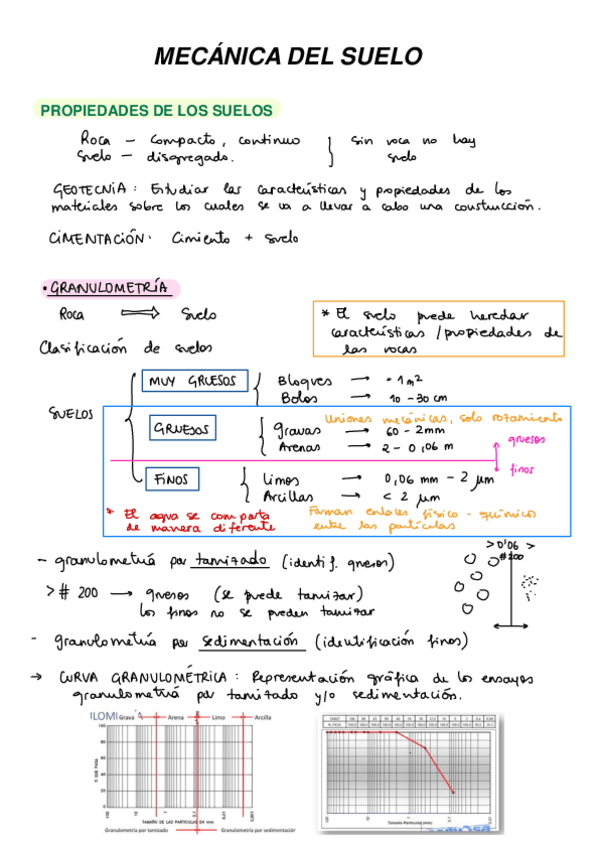 MECÁNICA DEL SUELO
PROPIEDADES DE LOS SUELOS
Roca — Compacto, continuo
Suelo — disgregado.
sin roca no hay
suelo
GEOTECNIA: Estudiar las características y propiedades de los
materiales sobre los cuales se va a llevar a cabo una construcción.
CIMENTACIÓN: Cimiento + suelo
• GRANULOMETRÍA
Roca ⇒ Suelo
* El suelo puede heredar
características / propiedades de
las rocas
Clasificación de suelos
SUELOS
MUY GRUESOS
Bloques → ≈ 1 m2
Bolos → 10 - 30 cm
Uniones mecánicas, solo rozamiento
GRUESOS
gravas → 60 - 2mm
Arenas → 2 - 0,06 m
gruesos
finos
FINOS
Limos → 0,06 mm - 2 μm
Arcillas → < 2 μm
* El agua se comporta
de manera diferente
Forman enlaces físico - químicos
entre las partículas
- granulometría por tamizado (identif. gruesos)
> # 200 → gruesos (se puede tamizar)
los finos no se pueden tamizar
> 0'06 >
#200
- granulometría por sedimentación (identificación finos)
→ CURVA GRANULOMÉTRICA: Representación gráfica de los ensayos
granulometría por tamizado y/o sedimentación.
Grava Arena Limo Arcilla
% QUE PASA
100
80
60
40
20
0
100 10 1 0,1 0,01 0,001
TAMAÑO DE LAS PARTICULAS EN mm
Granulometría por tamizado Granulometría por sedimentación
Tamaño Partículas (mm)